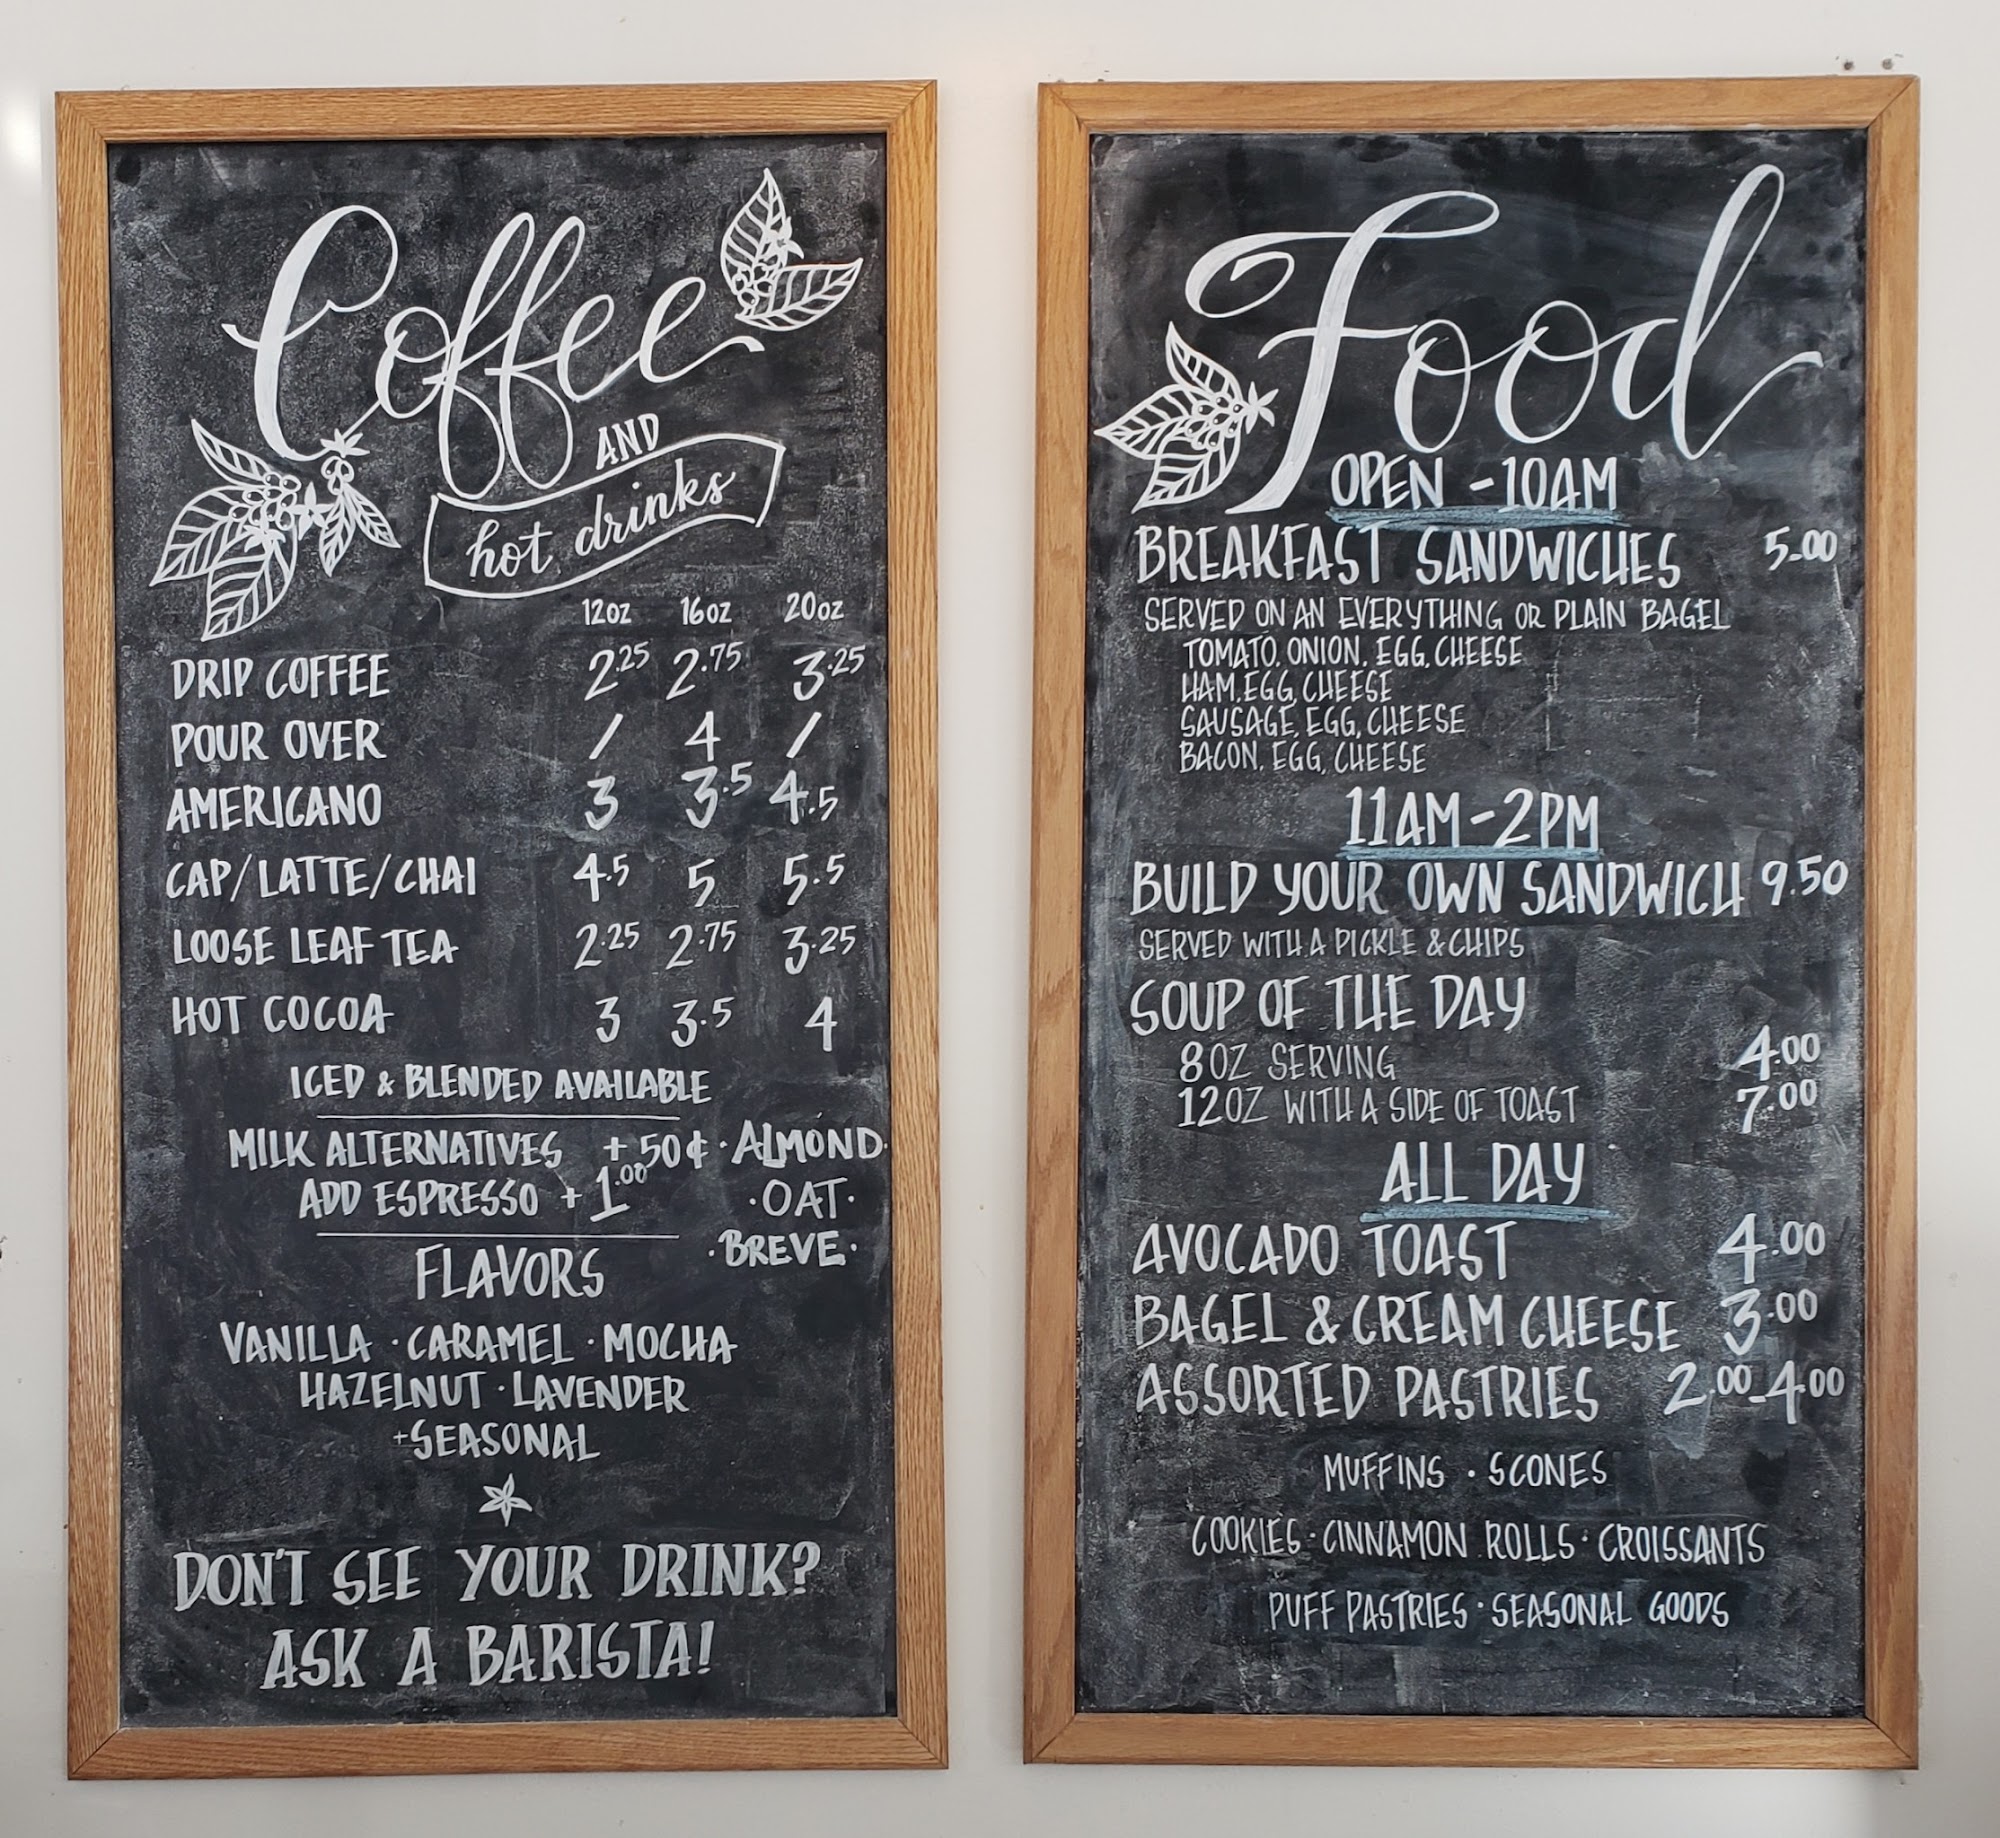 Coffee
AND
hot drinks
12oz 16oz 20oz
DRIP COFFEE 2.25 2.75 3.25
POUR OVER / 4 /
AMERICANO 3 3.5 4.5
CAP/LATTE/CHAI 4.5 5 5.5
LOOSE LEAF TEA 2.25 2.75 3.25
HOT COCOA 3 3.5 4
ICED & BLENDED AVAILABLE
MILK ALTERNATIVES +50¢ · ALMOND ·
ADD ESPRESSO + 1.00 · OAT ·
· BREVE ·
FLAVORS
VANILLA · CARAMEL · MOCHA
HAZELNUT · LAVENDER
+SEASONAL
DON'T SEE YOUR DRINK?
ASK A BARISTA!
Food
OPEN -10AM
BREAKFAST SANDWICHES 5.00
SERVED ON AN EVERYTHING OR PLAIN BAGEL
TOMATO, ONION, EGG, CHEESE
HAM, EGG, CHEESE
SAUSAGE, EGG, CHEESE
BACON, EGG, CHEESE
11AM-2PM
BUILD YOUR OWN SANDWICH 9.50
SERVED WITH A PICKLE & CHIPS
SOUP OF THE DAY
8OZ SERVING 4.00
12OZ WITH A SIDE OF TOAST 7.00
ALL DAY
AVOCADO TOAST 4.00
BAGEL & CREAM CHEESE 3.00
ASSORTED PASTRIES 2.00-4.00
MUFFINS · SCONES
COOKIES · CINNAMON ROLLS · CROISSANTS
PUFF PASTRIES · SEASONAL GOODS